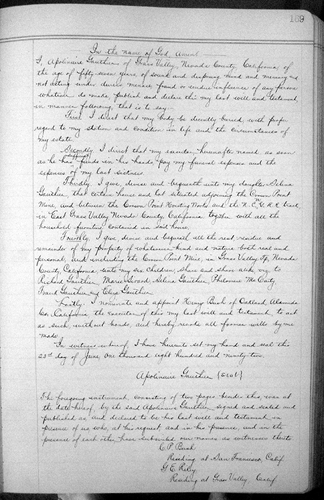 169
In the name of God, Amen!
I, Apolinaire Gauthier of Grass Valley, Nevada County, California of
the age of fifty seven years, of sound and disposing mind and memory and
not acting under duress menace, fraud or undue influence of any person
whatever do make, publish and declare this my last will and testament
in manner following, that is to say:
First I direct that my body be decently buried with proper
regard to my station and condition in life and the circumstances of
my estate.
Secondly I direct that my executor hereinafter named as soon
as he has funds in his hands pay my funeral expenses and the
expenses of my last sickness.
Thirdly I give, devise and bequeath unto my daughter
Gauthier, that certain house and lot situated adjoining the
Mine, and between the Works and the N.C.N.G.R.R. track
in East Grass Valley Nevada County, California together with all the
household furniture contained in said house.
Fourthly I give devise and bequeath all the rest residue and
remainder of my property of whatsoever kind and nature both real and
personal, and including the Mine, in Grass Valley, Nevada
County California unto my six children, share and share alike viz to
Richard Gauthier, Marie Gauthier, McCarty
Gauthier, and Gauthier.
Lastly I nominate and appoint Henry of Oakland, Alameda
Co. California the executor of this my last will and testament, to act
as such without bonds, and hereby revoke all former wills by me
made.
In witness whereof I have hereunto set my hand and seal this
23rd day of June, one thousand eight hundred and ninety two.
Apolinaire Gauthier (Seal)
The foregoing instrument, consisting of two pages besides this, was at
the date hereof, by the said Apolinaire Gauthier signed and sealed and
published as, and declared to be his last will and testament, in
presence of us who, at his request and in his presence, and in the
presence of each other have subscribed our names as witnesses thereto
C. P. Bush
Residing at San Francisco, Calif.
Residing at Grass Valley, Calif